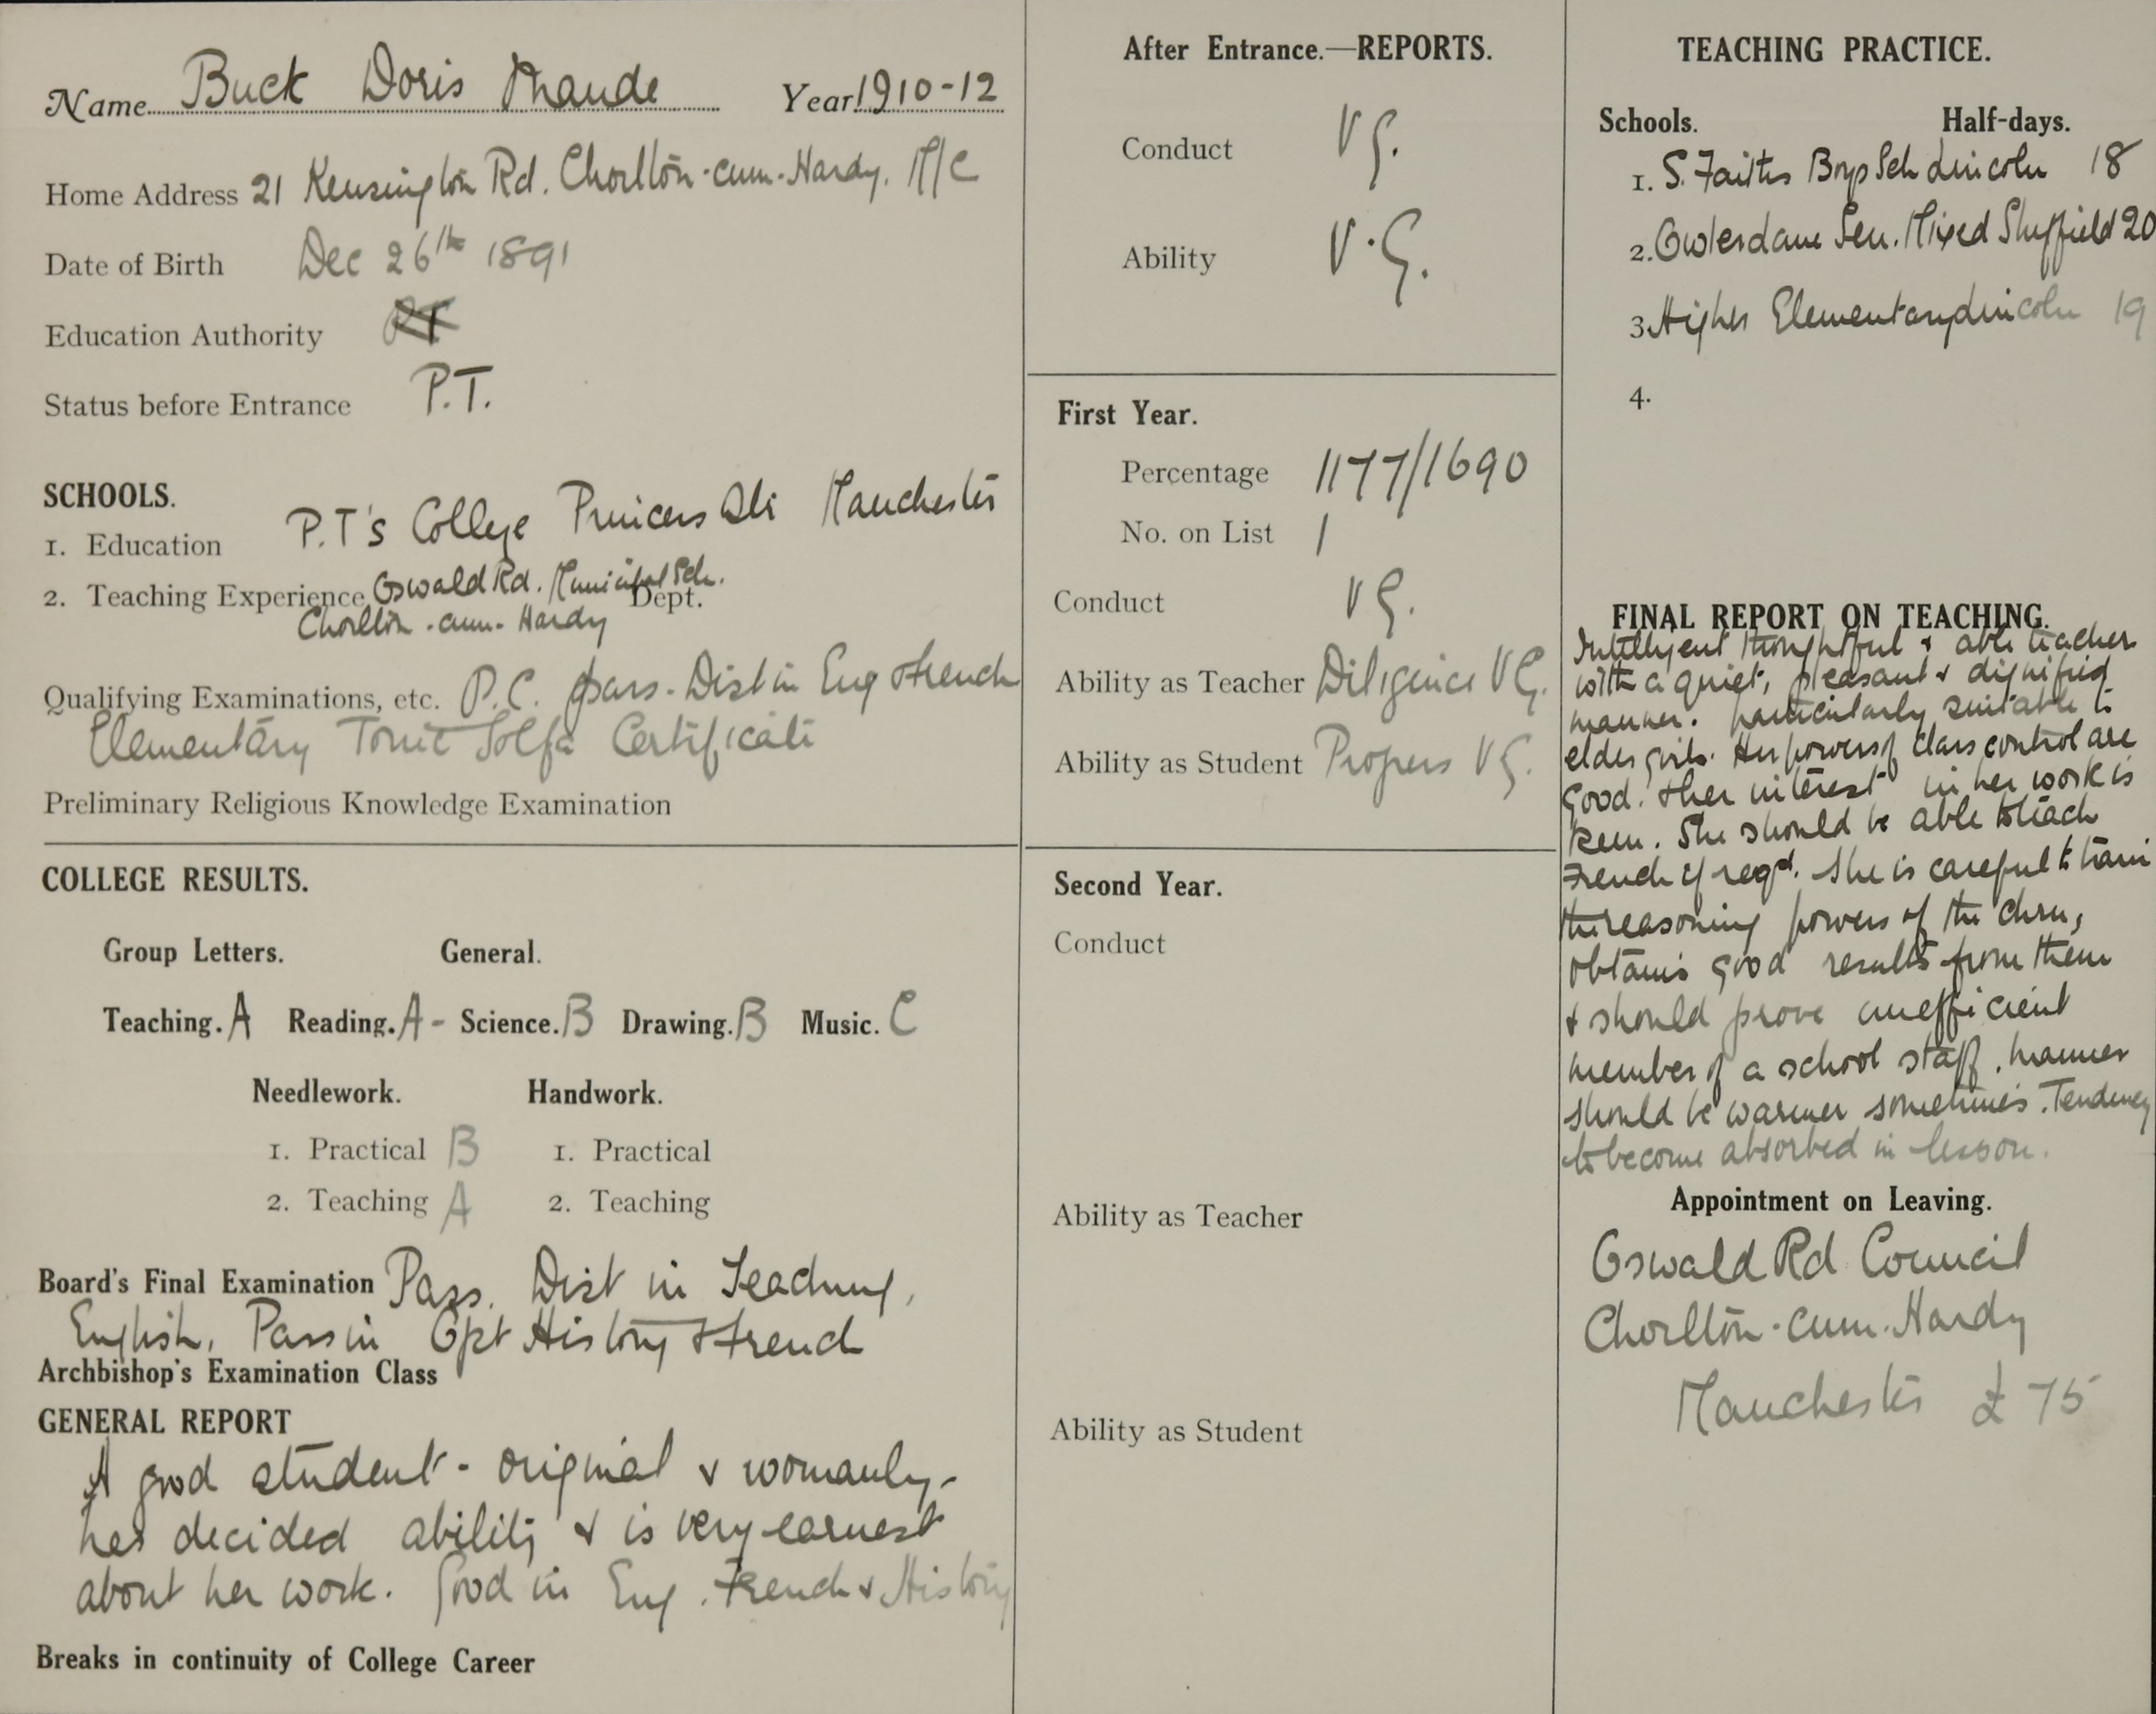 Name Buck Doris Maude Year 1910-12
Home Address 21 Kensington Rd. Chorlton-cum-Hardy. M/C
Date of Birth Dec 26th 1891
Education Authority PT
Status before Entrance P.T.
SCHOOLS.
1. Education P.T's College Princess Manchester
2. Teaching Experience Oswald Rd. Municipal Sch. Dept.
Chorlton-cum-Hardy
Qualifying Examinations, etc. P.C. pass-Dist in Eng & French
Elementary Tonic Solfa Certificate
Preliminary Religious Knowledge Examination
COLLEGE RESULTS.
Group Letters. General.
Teaching. A Reading. A- Science. B Drawing. B Music. C
Needlework. Handwork.
1. Practical B 1. Practical
2. Teaching A 2. Teaching
Board's Final Examination Pass. Dist in Teaching,
English, Pass in Opt History & French
Archbishop's Examination Class
GENERAL REPORT
A good student - original & womanly-
has decided ability & is very earnest
about her work. Good in Eng. French & History
Breaks in continuity of College Career
After Entrance.—REPORTS.
Conduct VG.
Ability V.G.
First Year.
Percentage 1177/1690
No. on List 1
Conduct VG.
Ability as Teacher Diligence VG.
Ability as Student Progress VG.
Second Year.
Conduct
Ability as Teacher
Ability as Student
TEACHING PRACTICE.
Schools. Half-days.
1. S. Faiths Boys Sch Lincoln 18
2. Owlerdane Sen. Mixed Sheffield 20
3 Higher Elementary Lincoln 19
4.
FINAL REPORT ON TEACHING.
Intelligent thoughtful & able teacher
with a quiet, pleasant & dignified
manner. particularly suitable to
elder girls. Her powers of class control are
good. & her interest in her work is
keen. She should be able to teach
French if reqd. She is careful to train
the reasoning powers of the chrn,
obtains good results from them
& should prove an efficient
member of a school staff. Manner
should be warmer sometimes. Tendency
to become absorbed in lesson.
Appointment on Leaving.
Oswald Rd Council
Chorlton-cum-Hardy
Manchester £75